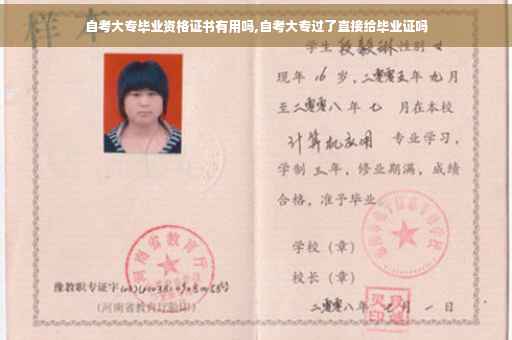 自考大专毕业资格证书有用吗,自考大专过了直接给毕业证吗
样本
学生 段毅琳 性别 女
现年 16 岁，二零零五年 九月
至二零零八年 七 月在本校
计算机应用 专业学习，
学制 三年，修业期满，成绩
合格，准予毕业。
学校（章）
校长（章）
二零零八年 七 月 一 日
河南省教育厅
豫教职专证字
（河南省教育厅验印）